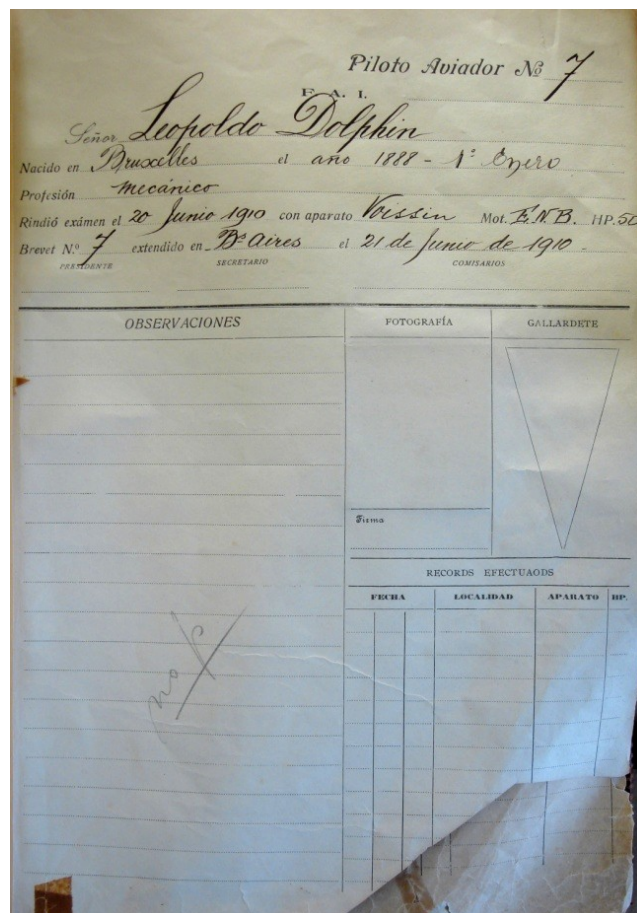 Piloto Aviador Nº 7
F. A. I.
Señor Leopoldo Dolphin
Nacido en Bruxelles el año 1888 - 1º Enero
Profesión mecánico
Rindió exámen el 20 Junio 1910 con aparato Voissin Mot. E.N.B. HP. 50
Brevet N.º 7 extendido en Bs Aires el 21 de Junio de 1910 -
PRESIDENTE SECRETARIO COMISARIOS
OBSERVACIONES FOTOGRAFÍA GALLARDETE
Firma
RECORDS EFECTUAODS
FECHA LOCALIDAD APARATO HP.
no